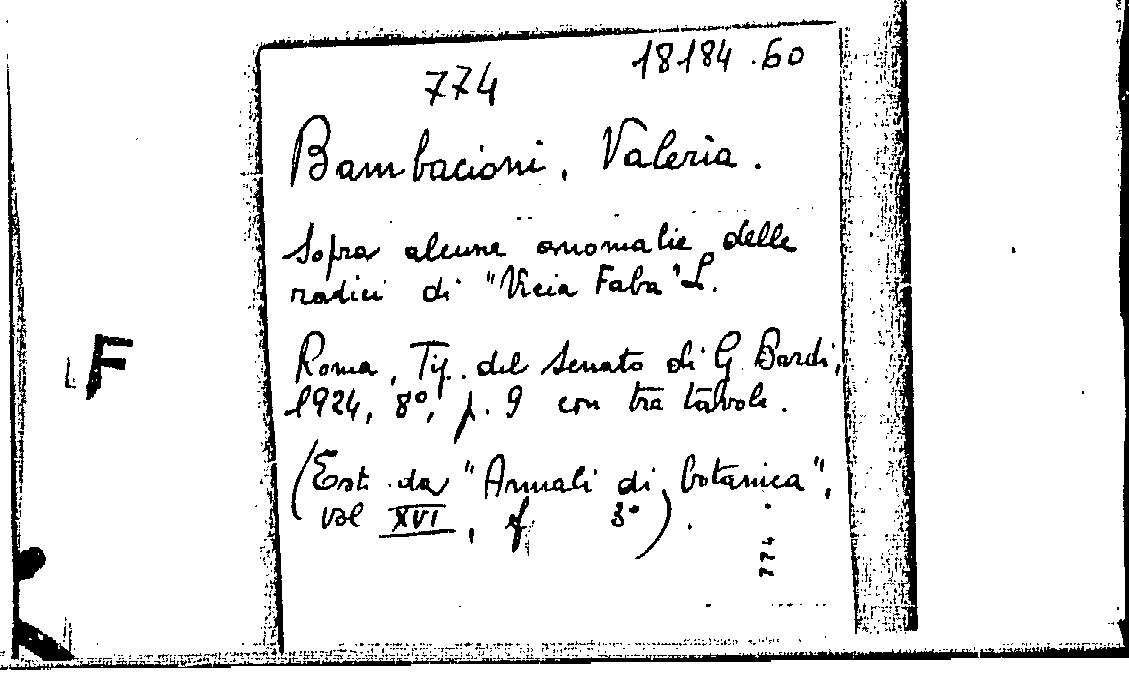 774 18184.60
Bambacioni, Valeria.
Sopra alcune anomalie delle
radici di "Vicia Faba" L.
F
Roma, Tip. del Senato di G. Bardi,
1924, 8°, p. 9 con tre tavole.
(Estr. da "Annali di botanica",
vol XVI, f 3°).
774